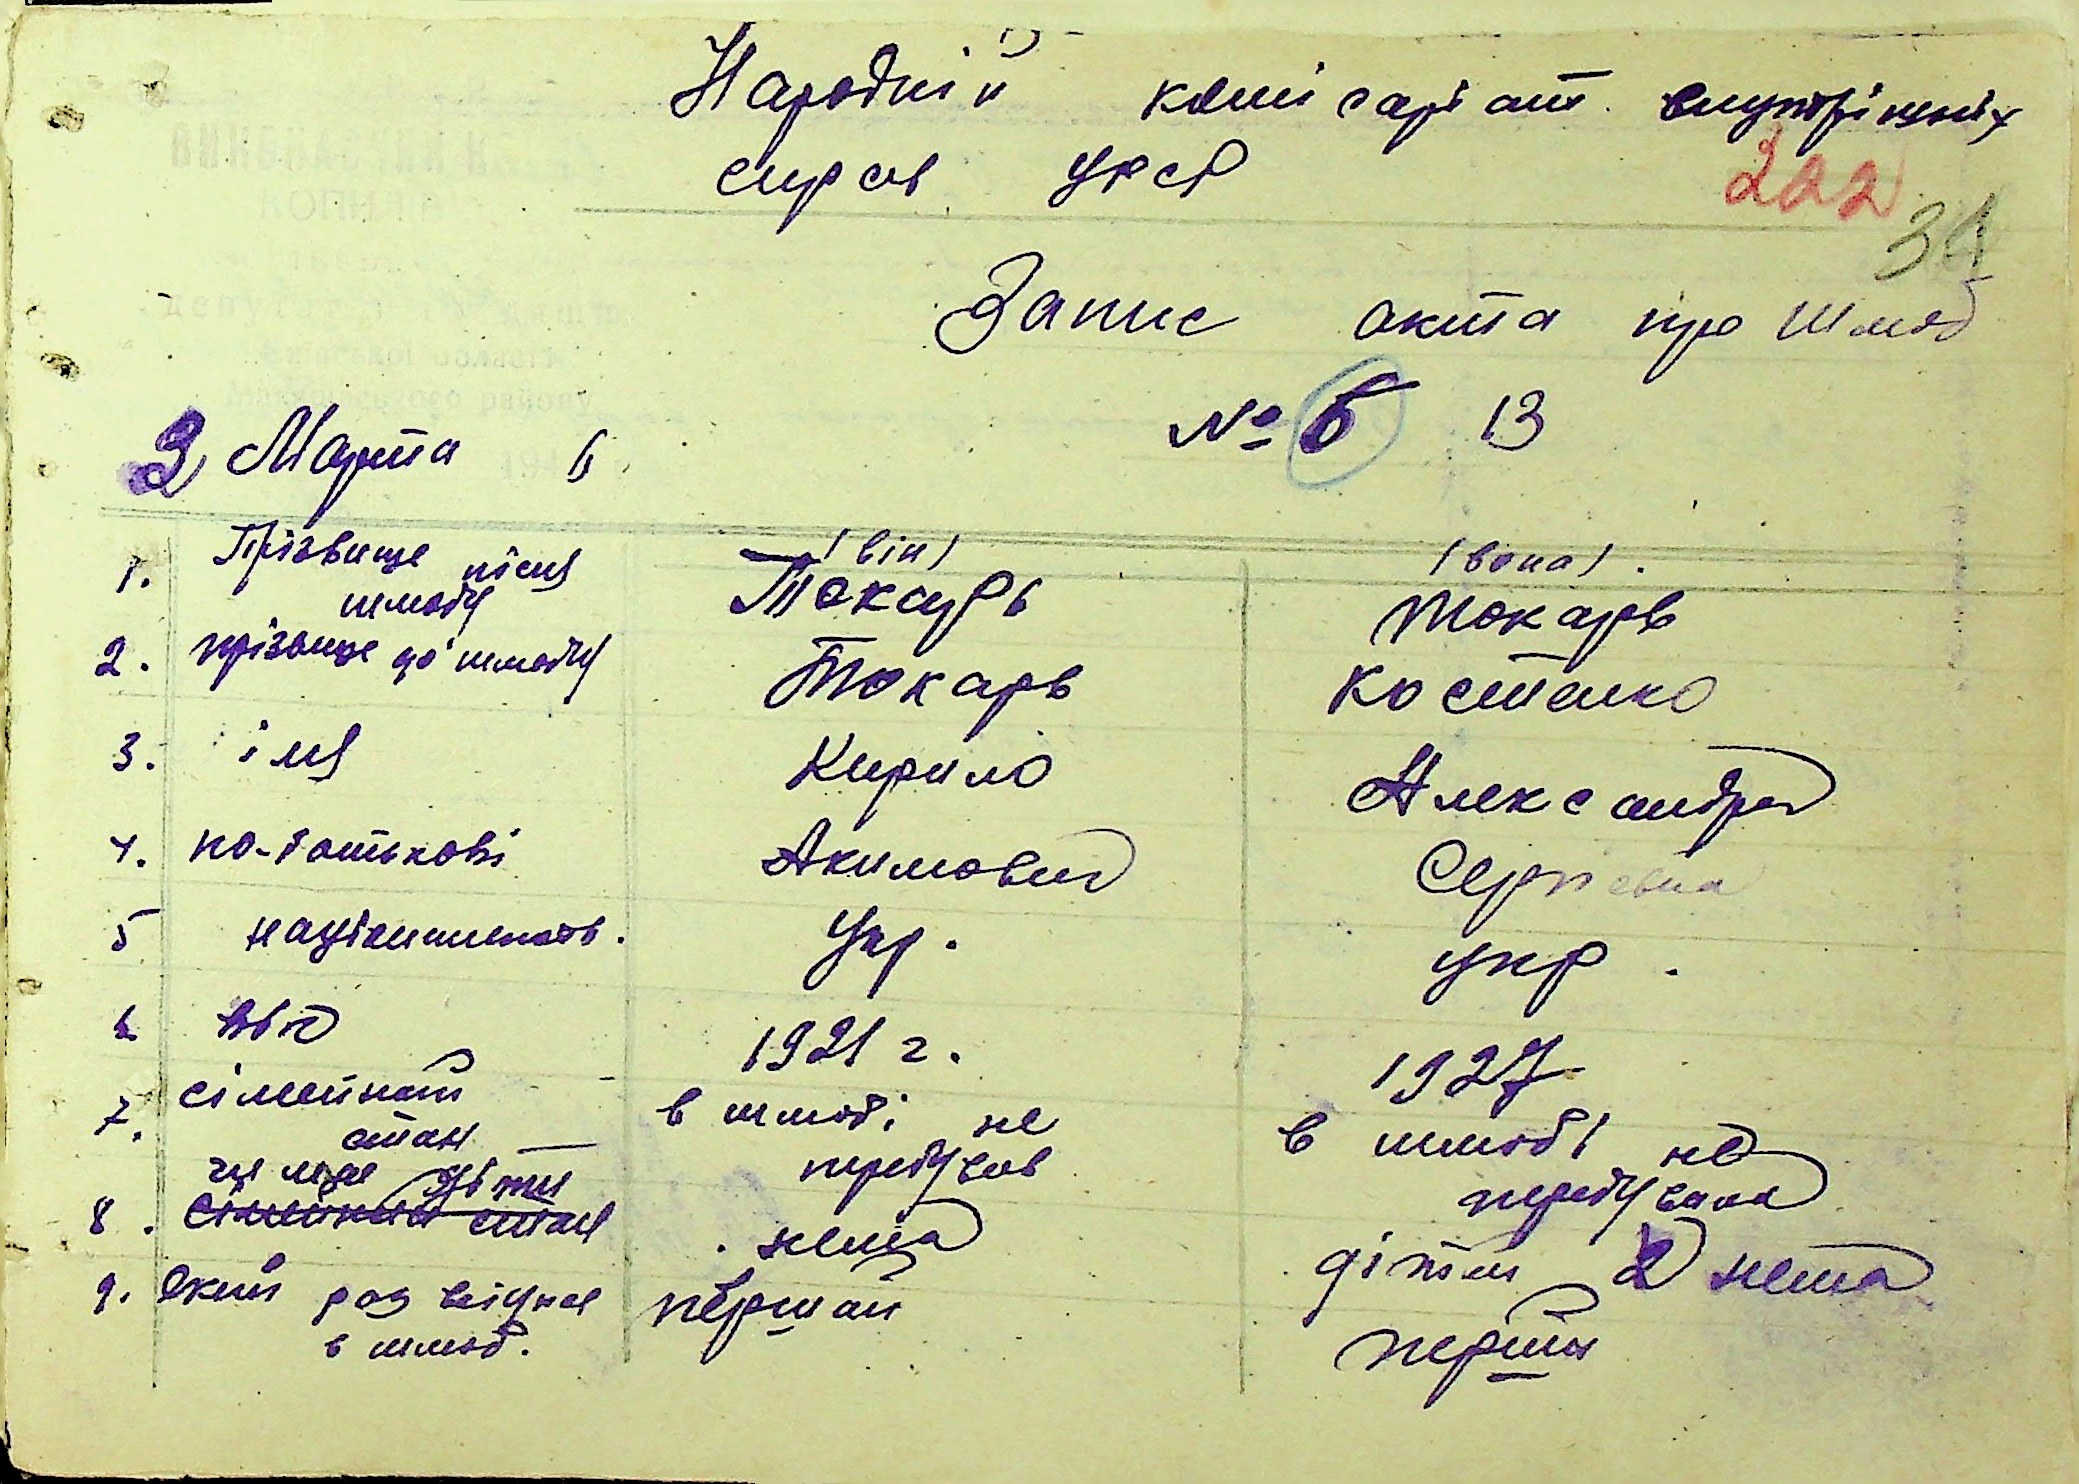 Народній комісаріат внутрішніх
справ УРСР
222
34
Запис акта про шлюб
№ 6 13
3 Марта
1. Прізвище після шлюбу /він/ Токарь /вона/. Токарь
2. прізвище до шлюбу Токарь Костенко
3. імя Кирило Александра
4. по-батькові Акимович Сергіевна
5 національность. Укр. укр.
6 вік 1921 г. 1927
7. сімейний стан в шлюбі не перебував в шлюбі не перебувала
8. чи має діти сімейний стан нема діти 2 нема
9. Який раз вступає в шлюб. перший перший